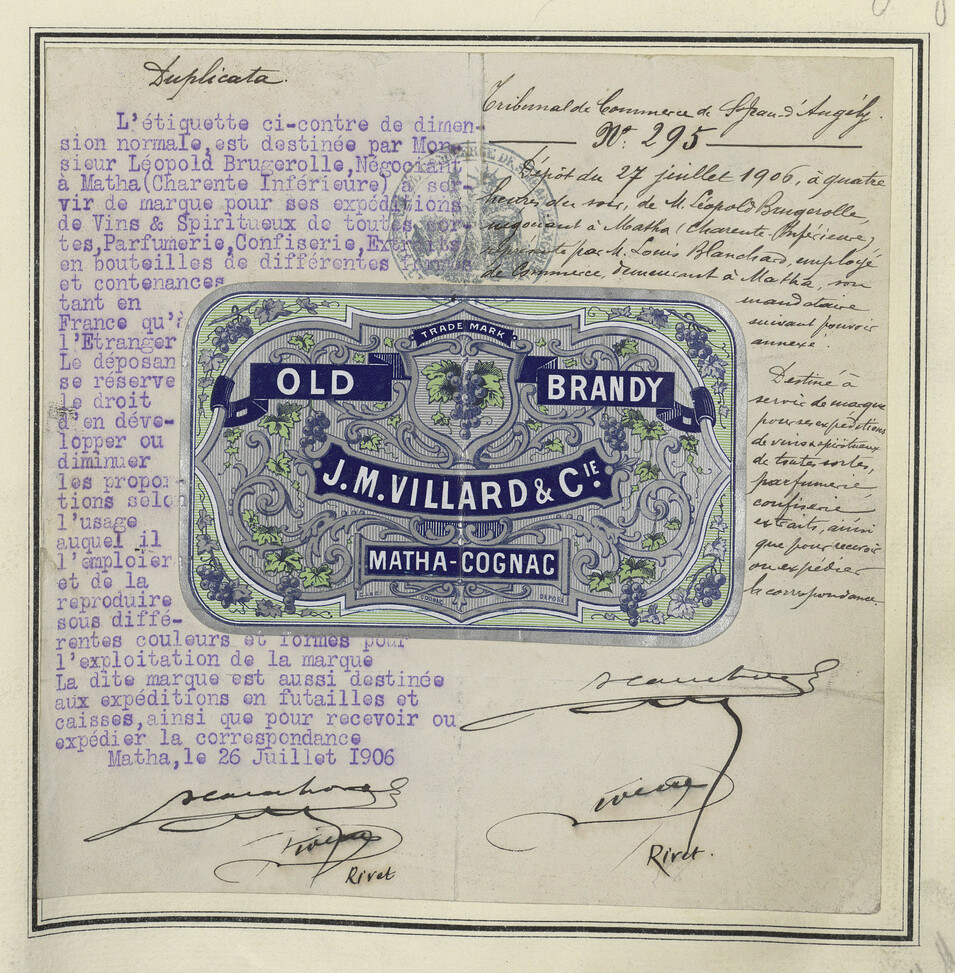 Duplicata.
L'étiquette ci-contre de dimen-
sion normale, est destinée par Mon-
sieur Léopold Brugerolle, Négociant
à Matha(Charente Inférieure) à ser-
vir de marque pour ses expéditions
de Vins & Spiritueux de toutes sor-
tes, Parfumerie, Confiserie, Extraits
en bouteilles de différentes formes
et contenances
tant en
France qu'à
l'Etranger
Le déposan
se réserve
le droit
d'en déve-
lopper ou
diminuer
les propor-
tions selo
l'usage
auquel il
l'emploier
et de la
reproduire
sous diffé-
rentes couleurs et formes pour
l'exploitation de la marque
La dite marque est aussi destinée
aux expéditions en futailles et
caisses, ainsi que pour recevoir ou
expédier la correspondance
Matha, le 26 Juillet 1906
Rivet
Tribunal de Commerce de St Jean d'Angély.
N° 295
Dépôt du 27 juillet 1906, à quatre
heures du soir, de M. Léopold Brugerolle,
négociant à Matha (Charente Inférieure)
par M. Louis Blanchard, employé
de Commerce, demeurant à Matha, son
mandataire
suivant pouvoir
annexé.
Destiné à
servir de marque
pour ses expéditions
de vins & spiritueux
de toutes sortes,
parfumerie
confiserie
extraits, ainsi
que pour recevoir
ou expédier
la correspondance.
Rivet.
TRADE MARK
OLD BRANDY
J.M. VILLARD & CIE.
MATHA-COGNAC